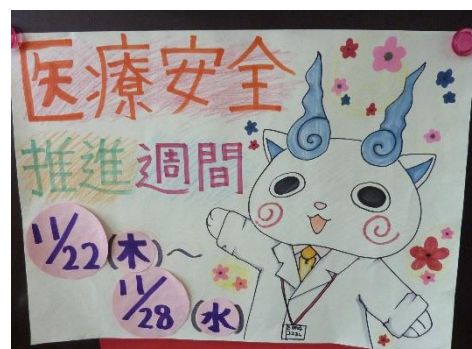 医療安全
推進週間
11/22(木)～
11/28(水)